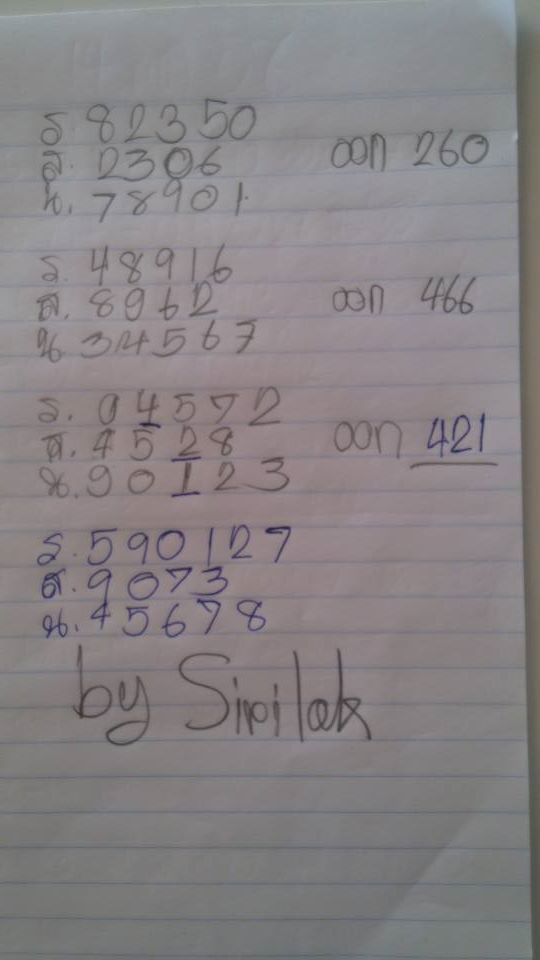 ร. 82350
ส. 2306 ออก 260
น. 78901.
ร. 48916
ส. 8962 ออก 466
น. 34567
ร. 94572
ส. 4528 ออก 421
น. 90123
ร. 590127
ส. 9073
น. 45678
by Sirilak